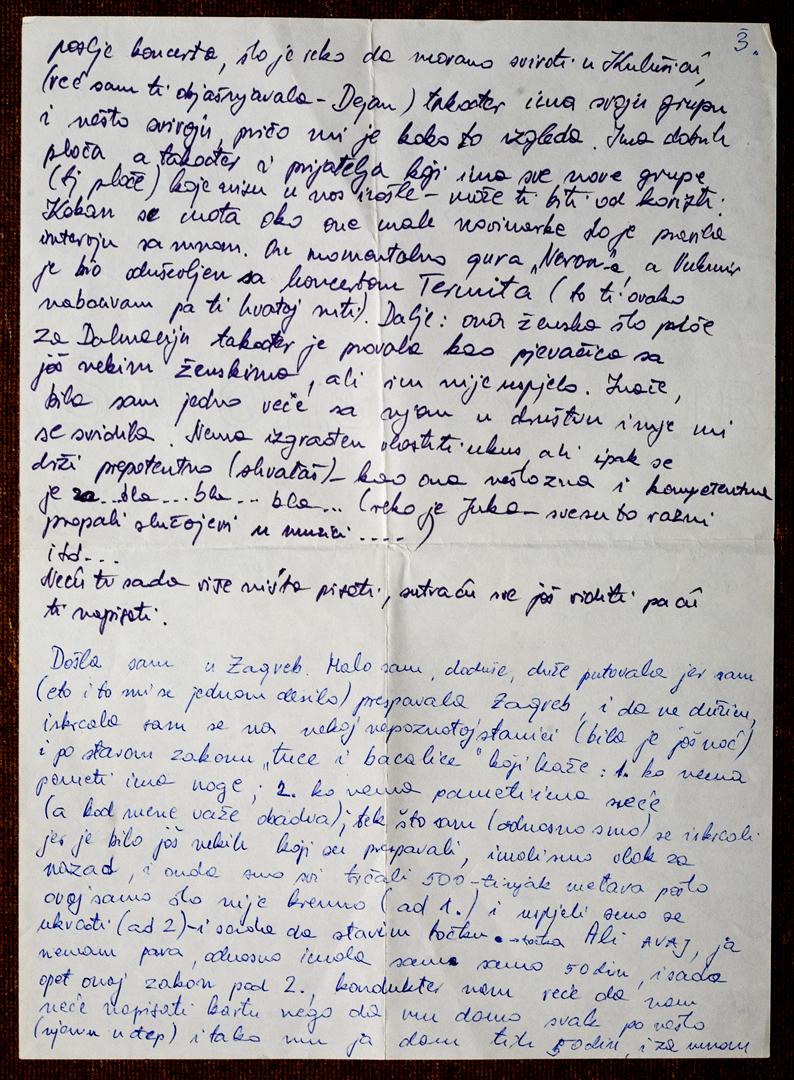 3.
poslje koncerta, što je reko da moramo svirati u Kulušić,
(već sam ti objašnjavala – Dejan) također ima svoju grupu
i nešto sviraju, pričo mi je kako to izgleda. Ima dobrih
ploča a također i prijatelja koji ima sve nove grupe
(tj ploče) koje nisu u nas izašle – može ti biti od koristi.
Kokan se mota oko one male novinarke što je pravila
intervju sa mnom. On momentalno gura „Neron"-a, a Vukmir
je bio oduševljen sa koncertom Termita (to ti ovako
nabacujem pa ti hvataj niti). Dalje: ona ženska što piše
za Dalmaciju također je provala kao pjevačica sa
još nekim ženskima, ali im nije uspjelo. Inače,
bila sam jedno veče sa njom u društvu i nije mi
se svidila. Nema izgrađen vlastiti ukus, ali ipak se
drži prepotentno (shvataš) – kao ona nešto zna i kompetentna
je za ... bla ... bla ... bla ... (reko je Juka – sve su to razni
propali slučajevi u muzici ....)
itd...
Neću ti sada više ništa pisati, sutra ću sve još viditi pa ću
ti napisati.
Došla sam u Zagreb. Malo sam, doduše, duže putovala jer sam
(eto i to mi se jednom desilo) prespavala Zagreb, i da ne dužim,
iskrcala sam se na nekoj nepoznatoj stanici (bila je još noć)
i po starom zakonu „tuce i bacalice" koji kaže: 1. ko nema
pameti ima noge; 2. ko nema pameti ima sreće
(a kod mene važe obadva); tek što sam (odnosno smo) se iskrcali
jer je bilo još nekih koji su prespavali, imali smo vlak za
nazad, i onda smo svi trčali 500-tinjak metara pošto
ovaj samo što nije krenuo (ad 1.) i uspjeli smo se
ukrcati (ad 2) – i sada da stavim točku • točka Ali AVAJ, ja
nemam para, odnosno imala sam samo 50 din, i sada
opet onaj zakon pod 2., kondukter nam reče da nam
neće napisati kartu nego da mu damo svak po nešto
(njemu u džep) i tako mu ja dam tih 50 din, i za mnom